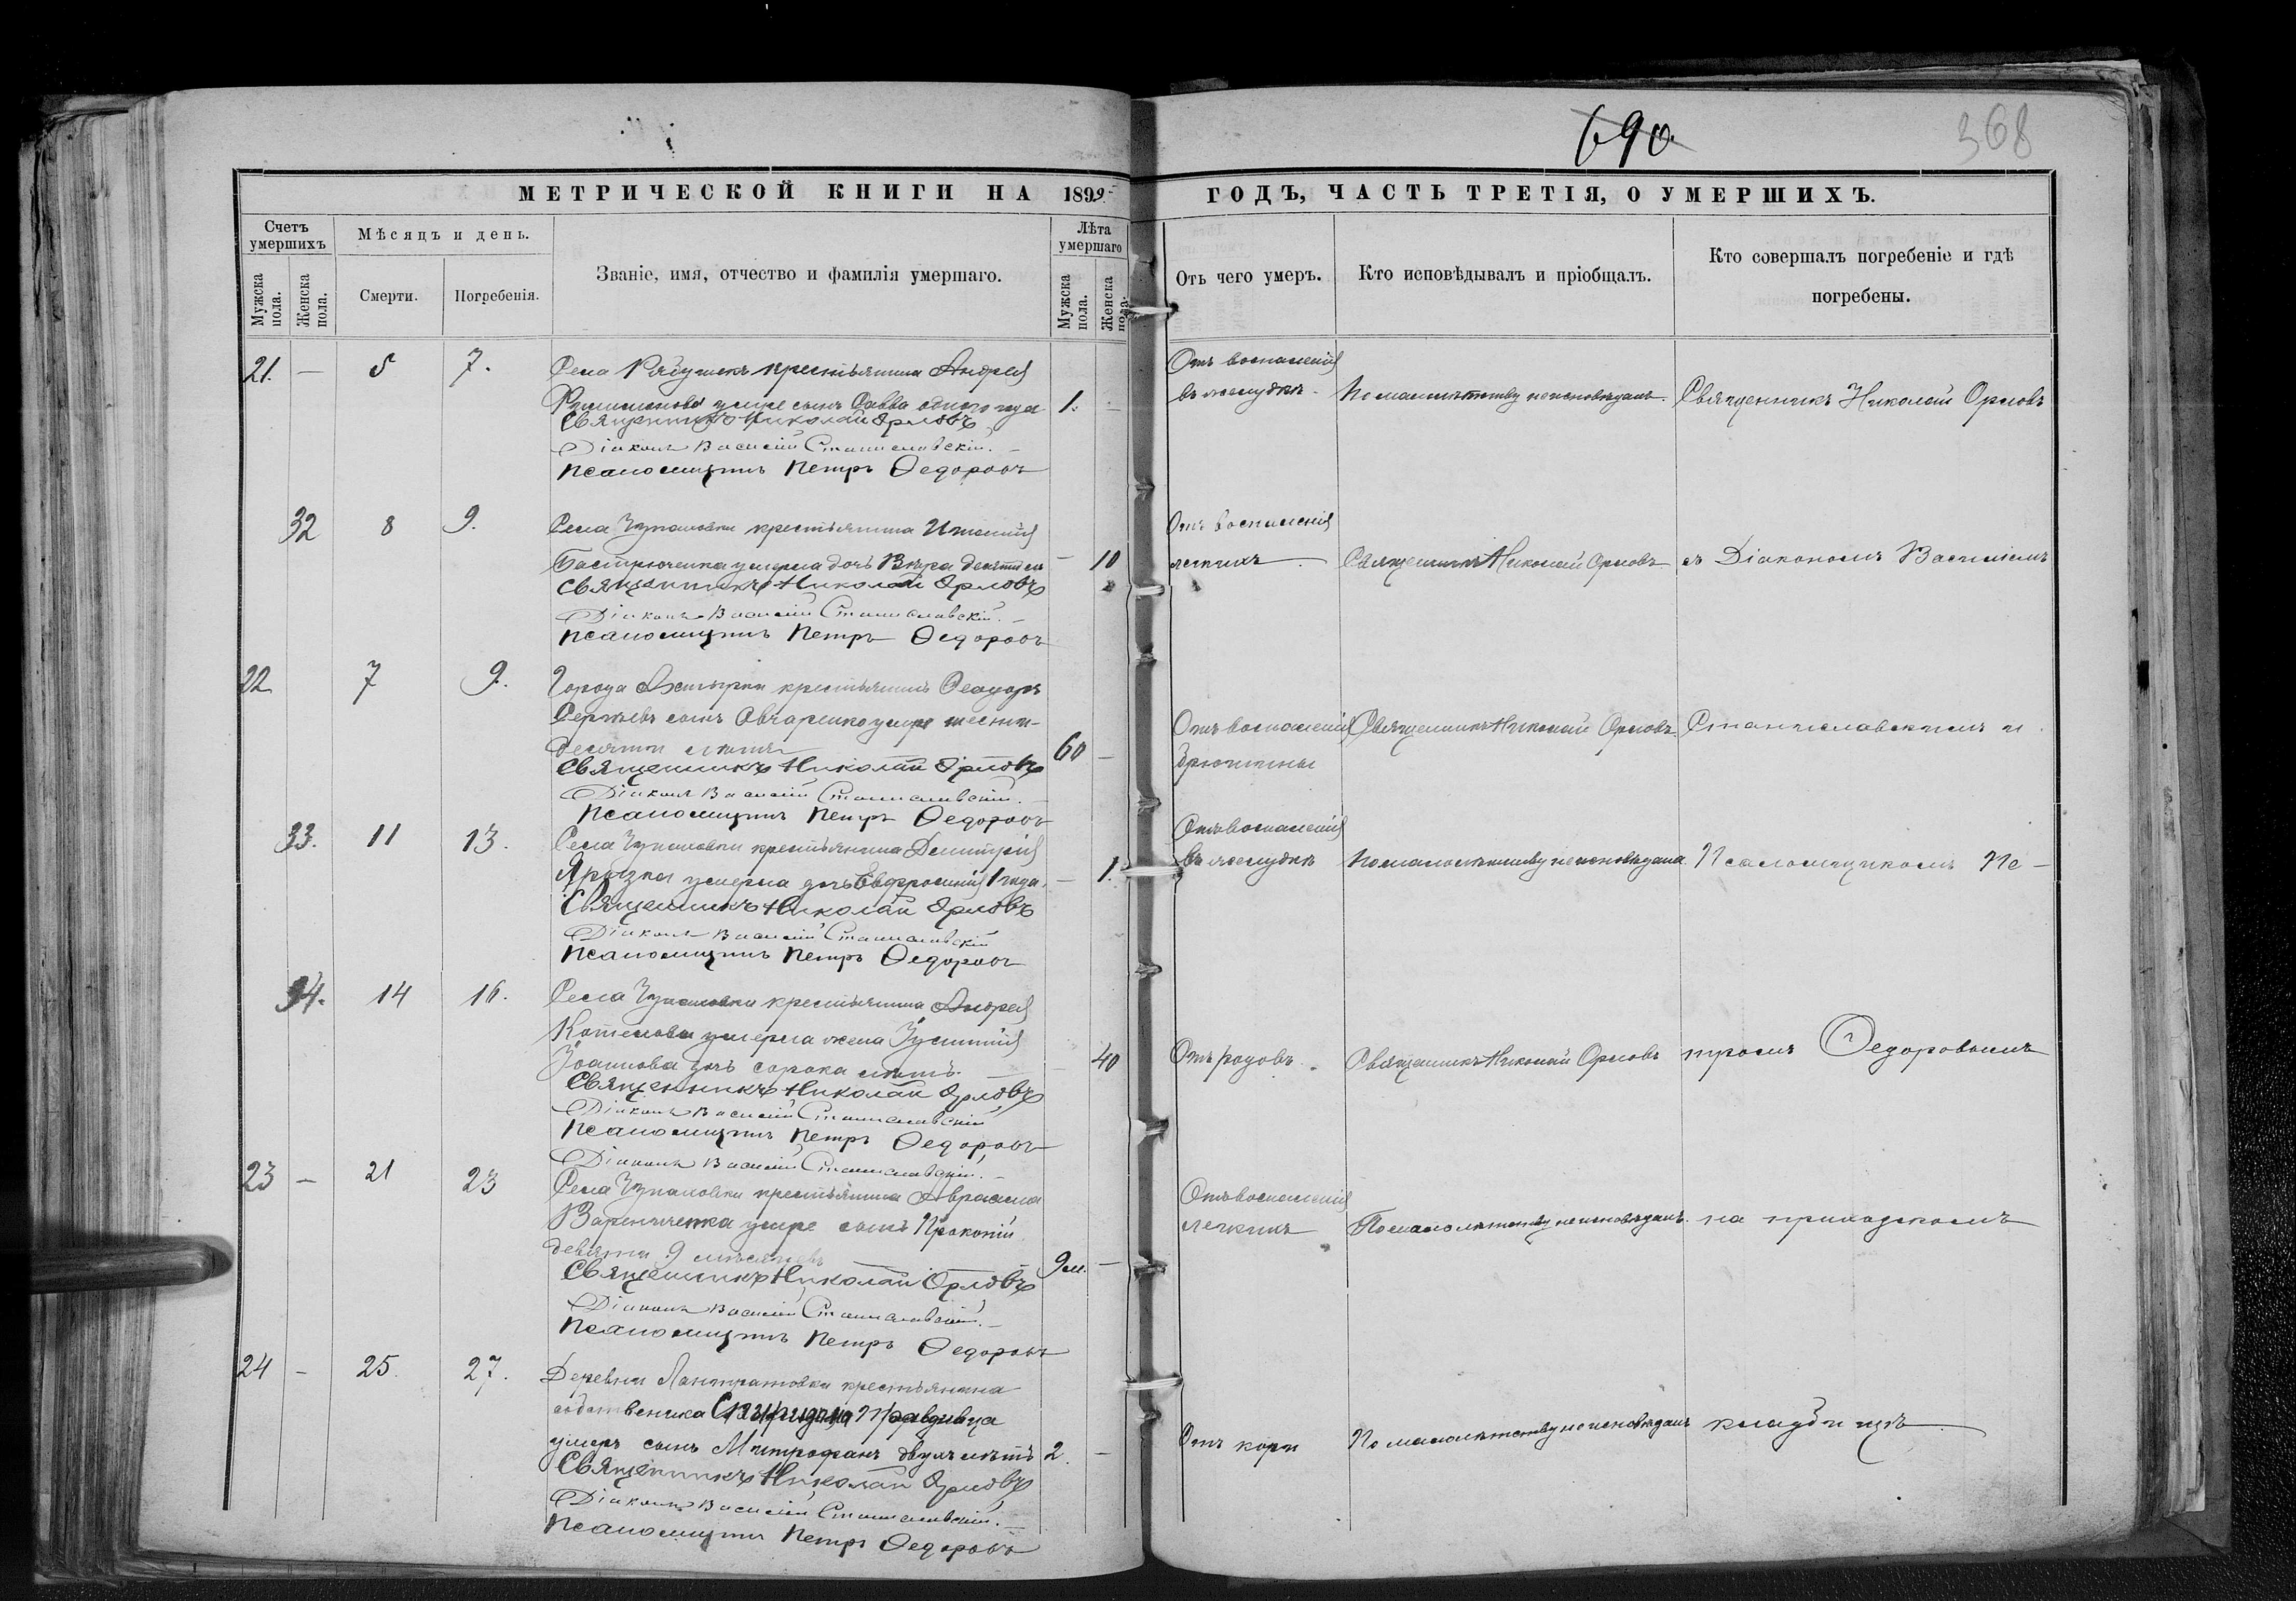 690
368
МЕТРИЧЕСКОЙ КНИГИ НА 1899
ГОДЪ, ЧАСТЬ ТРЕТІЯ, О УМЕРШИХЪ.
Счетъ умершихъ
Мужска пола.
Женска пола.
Мѣсяцъ и день.
Смерти.
Погребенія.
Званіе, имя, отчество и фамилія умершаго.
Лѣта умершаго
Мужска пола.
Женска пола.
Отъ чего умеръ.
Кто исповѣдывалъ и пріобщалъ.
Кто совершалъ погребеніе и гдѣ
погребены.
21. — 5 7.
Села Рябушекъ крестьянина Андрея
умре сынъ Савва одного года 1. —
Священникъ Николай Орловъ
Діаконъ Василій Станиславскій.
Псаломщикъ Петръ Ѳедоровъ
Отъ воспаленія
въ желудкѣ
По малолѣтству неисповѣданъ.
Священникъ Николай Орловъ
32 8 9.
Села крестьянина
умерла дочь Вѣра десяти лѣ — 10
Священникъ Николай Орловъ
Діаконъ Василій Станиславскій.
Псаломщикъ Петръ Ѳедоровъ
Отъ воспаленія
легкихъ
Священникъ Николай Орловъ
съ Діакономъ Василіемъ
22 7 9.
Города Ахтырки крестьянинъ Ѳеодоръ
Сергѣевъ сынъ Овчаренко умре шести-
десяти лѣтъ 60 —
Священникъ Николай Орловъ
Діаконъ Василій Станиславскій.
Псаломщикъ Петръ Ѳедоровъ
Отъ воспаленія
брюшины
Священникъ Николай Орловъ
Станиславскимъ и
33. 11 13.
Села крестьянина Димитрія
умерла дочь Евфросинія 1 года. — 1.
Священникъ Николай Орловъ
Діаконъ Василій Станиславскій
Псаломщикъ Петръ Ѳедоровъ
Отъ воспаленія
въ желудкѣ
По малолѣтству неисповѣдана
Псаломщикомъ Пе-
34. 14 16.
Села крестьянина Андрея
Котелова умерла жена Іустинія
Іоаннова дочь сорока лѣтъ. — 40
Священникъ Николай Орловъ
Діаконъ Василій Станиславскій
Псаломщикъ Петръ Ѳедоровъ
Діаконъ Василій Станиславскій.
Отъ родовъ.
Священникъ Николай Орловъ
тромъ Ѳедоровымъ
23 — 21 23
Села крестьянина Авраама
умре сынъ Прокопій
девяти 9 мѣсяцевъ 9 м. —
Священникъ Николай Орловъ
Діаконъ Василій Станиславскій.
Псаломщикъ Петръ Ѳедоровъ
Отъ воспаленія
легкихъ
По малолѣтству неисповѣданъ.
на приходскомъ
24 — 25. 27.
Деревни Лантратовки крестьянина
собственика Спиридона Правдивца
умеръ сынъ Митрофанъ двухъ лѣтъ 2. —
Священникъ Николай Орловъ
Діаконъ Василій Станиславскій.
Псаломщикъ Петръ Ѳедоровъ
Отъ кори
По малолѣтству неисповѣданъ
кладбищѣ.